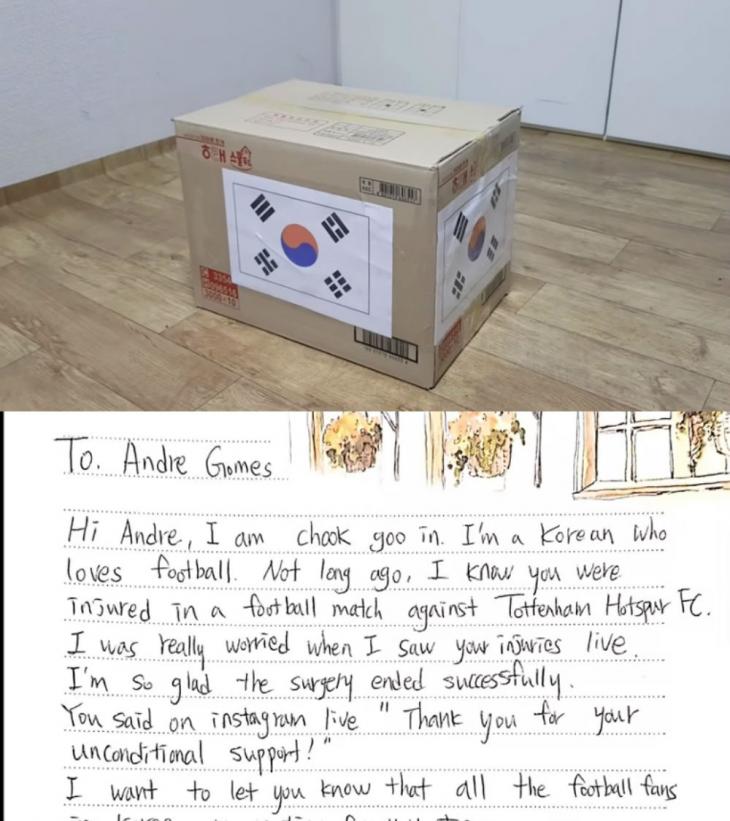 해태
To. Andre Gomes
Hi Andre, I am chook goo in. I'm a Korean who
loves football. Not long ago, I know you were
injured in a football match against Tottenham Hotspur FC.
I was really worried when I saw your injuries live.
I'm so glad the surgery ended successfully.
You said on instagram live " Thank you for your
unconditional support! "
I want to let you know that all the football fans